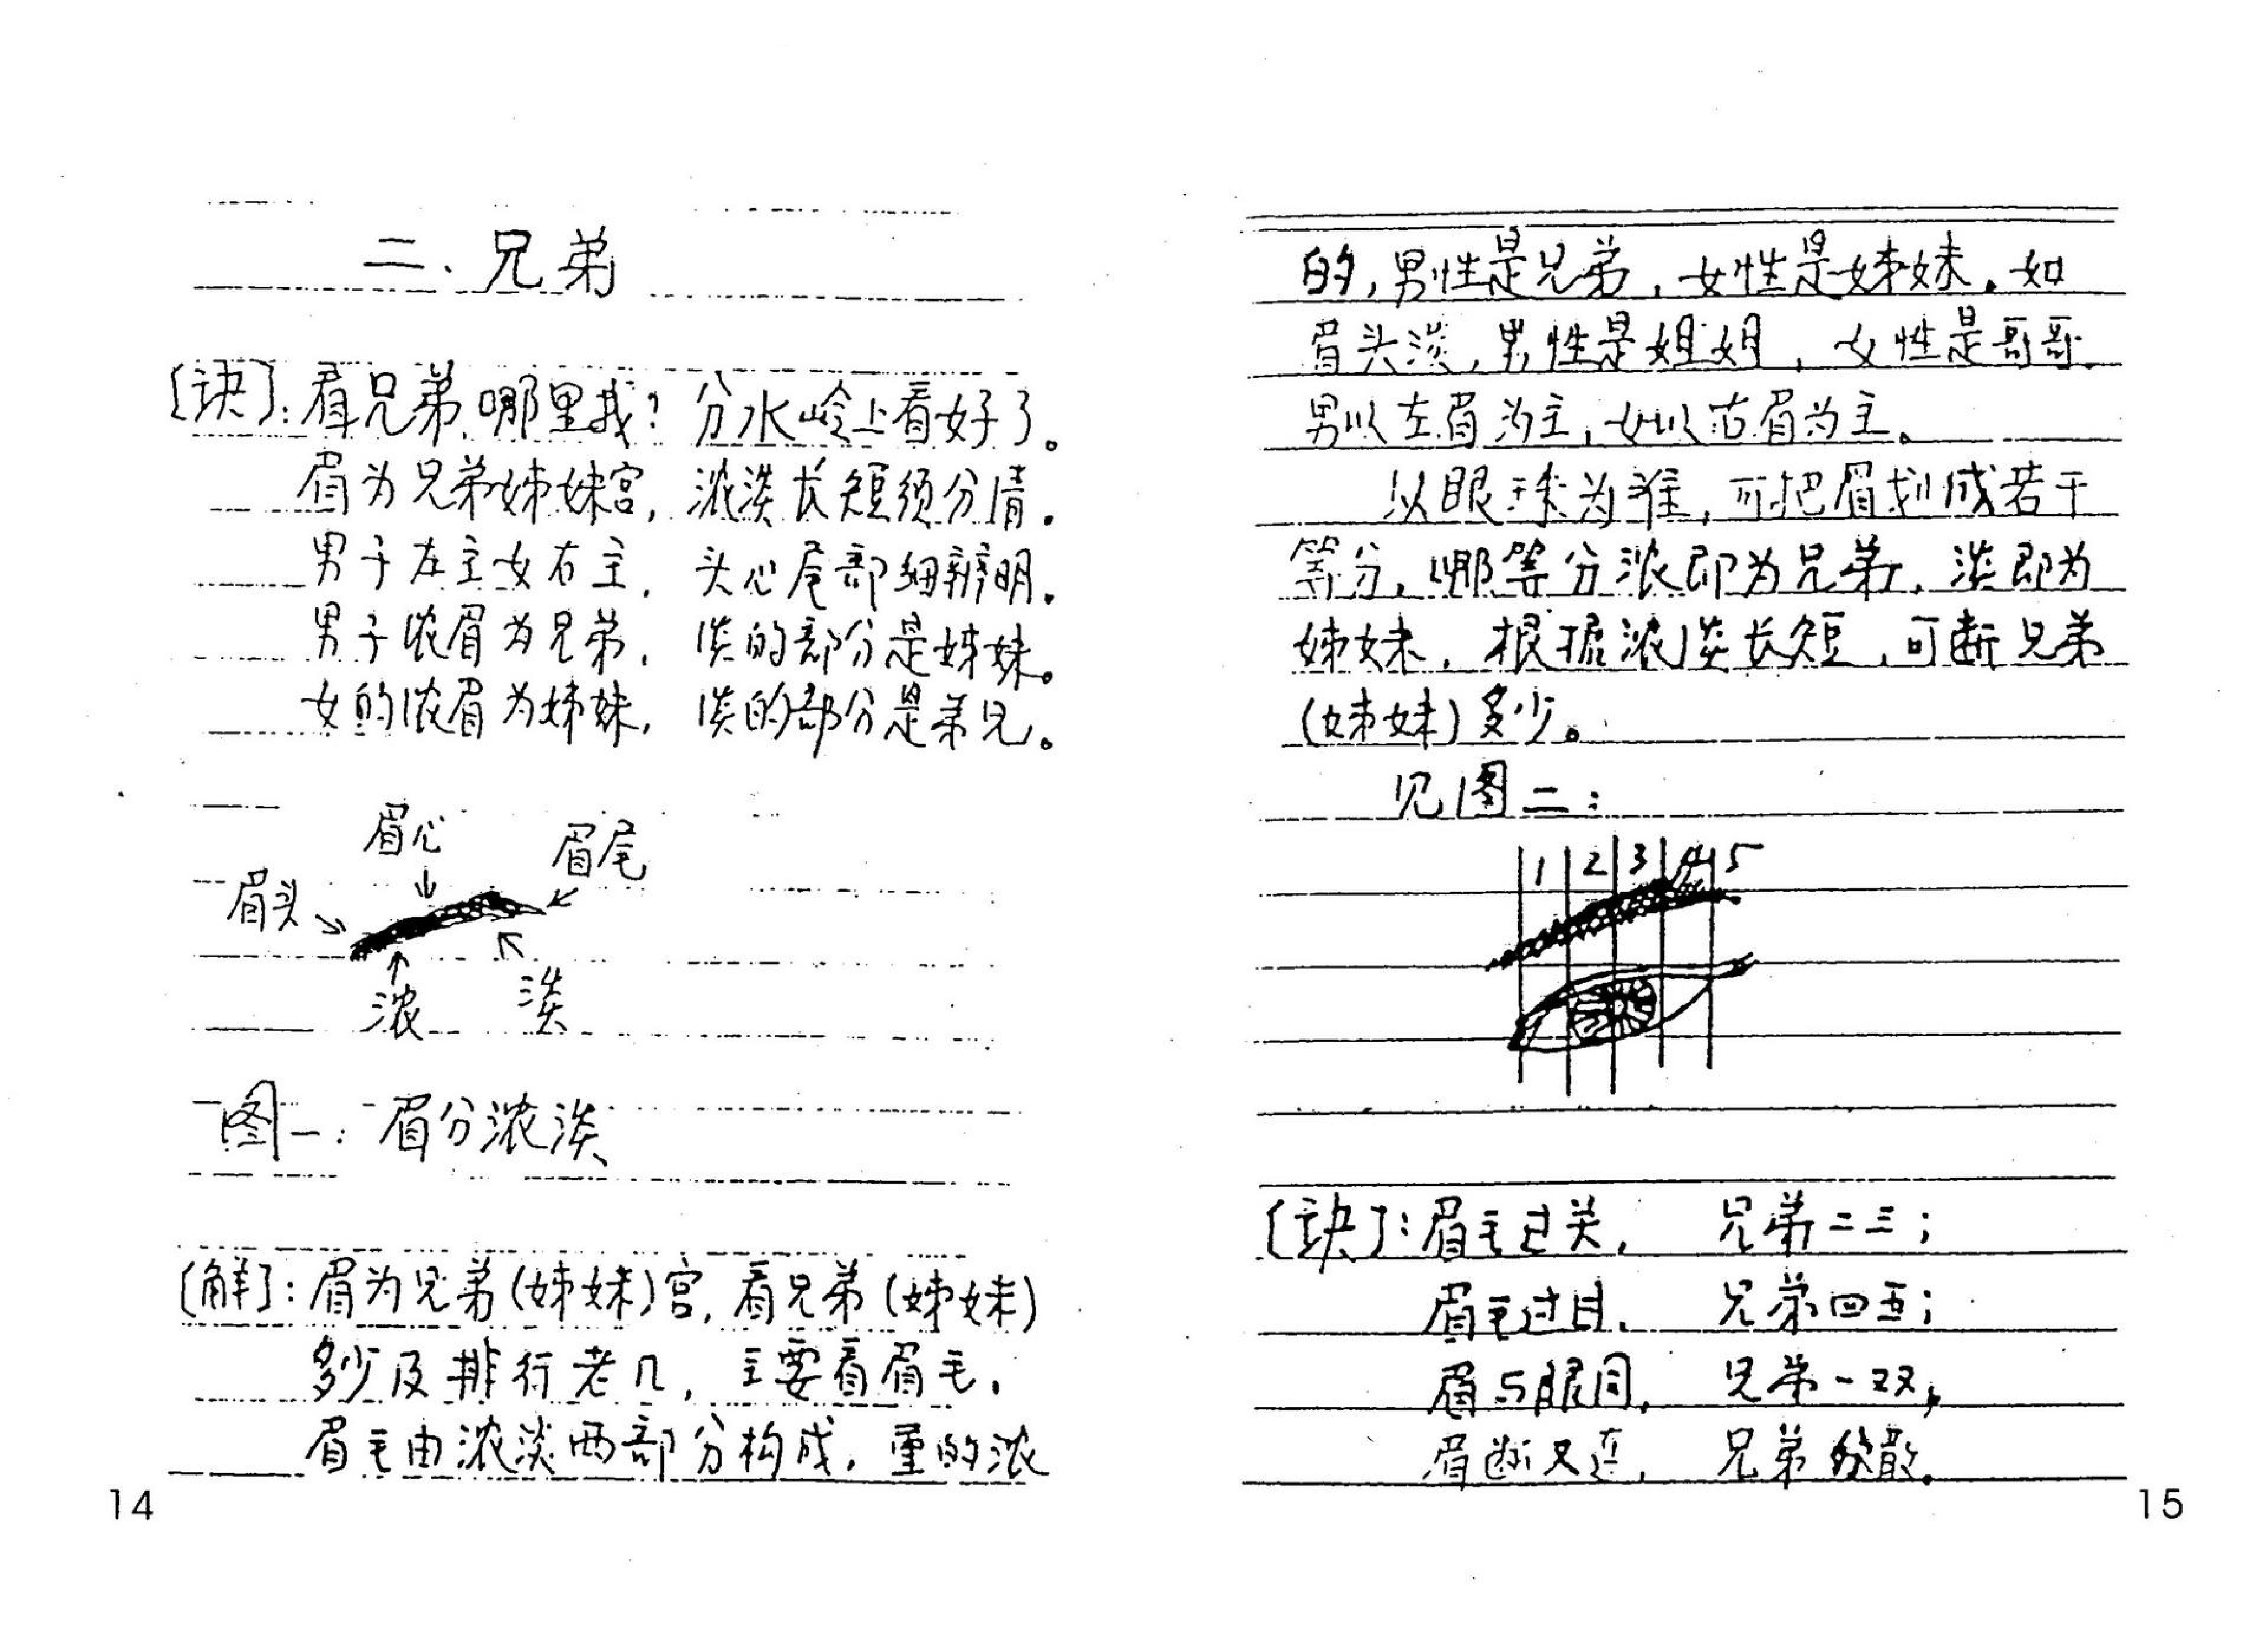 二、兄弟
[诀]：看兄弟，哪里找？分水岭上看好了。
眉为兄弟姊妹宫，浓淡长短须分清。
男子左主女右主，头心尾部细辨明。
男子浓眉为兄弟，淡的部分是姊妹。
女的浓眉为姊妹，淡的部分是弟兄。
眉心
眉尾
眉头
浓 淡
图一：眉分浓淡
[解]：眉为兄弟(姊妹)宫，看兄弟(姊妹)
多少及排行老几，主要看眉毛。
眉毛由浓淡两部分构成，重的浓
14
的，男性是兄弟，女性是姊妹。如
眉头淡，男性是姐姐，女性是哥哥。
男以左眉为主，女以右眉为主。
以眼球为准，可把眉划成若干
等分，哪等分浓即为兄弟，淡即为
姊妹，根据浓淡长短，可断兄弟
(姊妹)多少。
见图二：
1 2 3 4 5
[诀]：眉毛过关，兄弟二三；
眉毛过目，兄弟四五；
眉与眼同，兄弟一双，
眉断又连，兄弟分散。
15